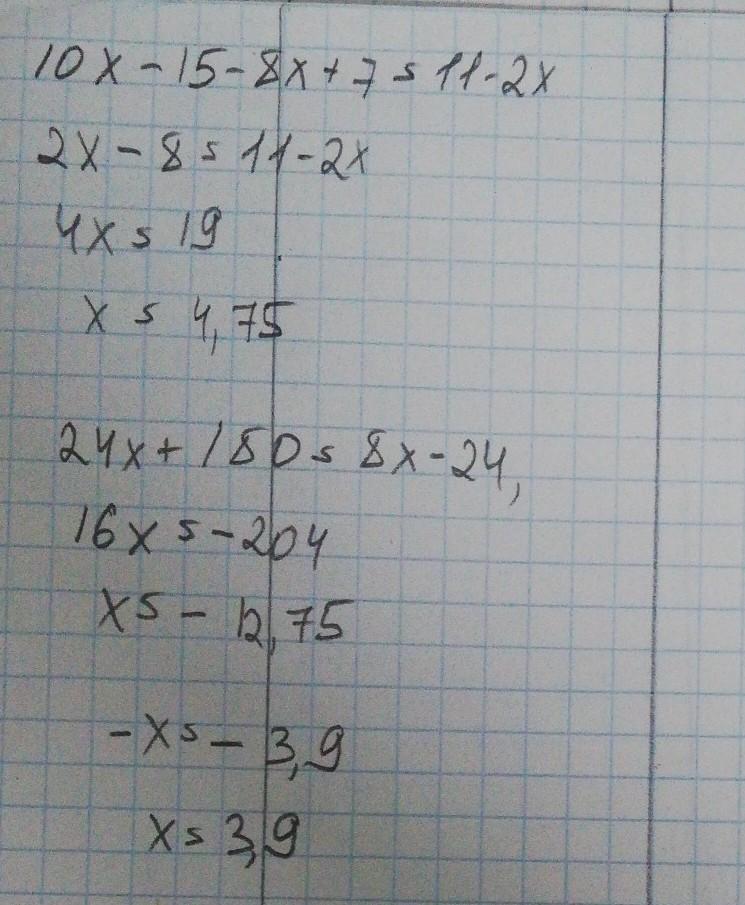 10x - 15 - 8x + 7 = 11 - 2x
2x - 8 = 11 - 2x
4x = 19
x = 4,75
24x + 180 = 8x - 24,
16x = - 204
x = - 12,75
- x = - 3,9
x = 3,9